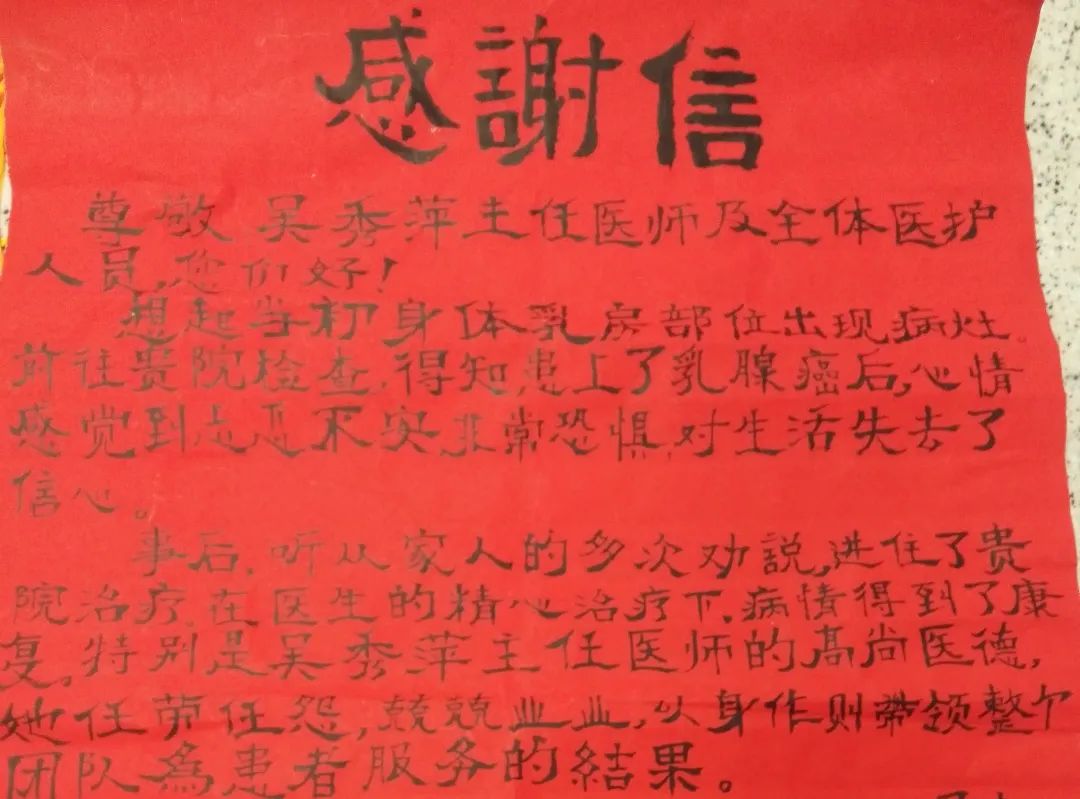 感謝信
尊敬吴秀萍主任医师及全体医护
人员,您们好!
想起当初身体乳房部位出现病灶。
前往贵院检查,得知患上了乳腺癌后,心情
感觉到忐忑不安,非常恐惧,对生活失去了
信心。
事后,听从家人的多次劝説,进住了贵
院治疗,在医生的精心治疗下,病情得到了康
复。特别是吴秀萍主任医师的高尚医德,
她任劳任怨,兢兢业业,以身作则带领整个
团队為患者服务的結果。